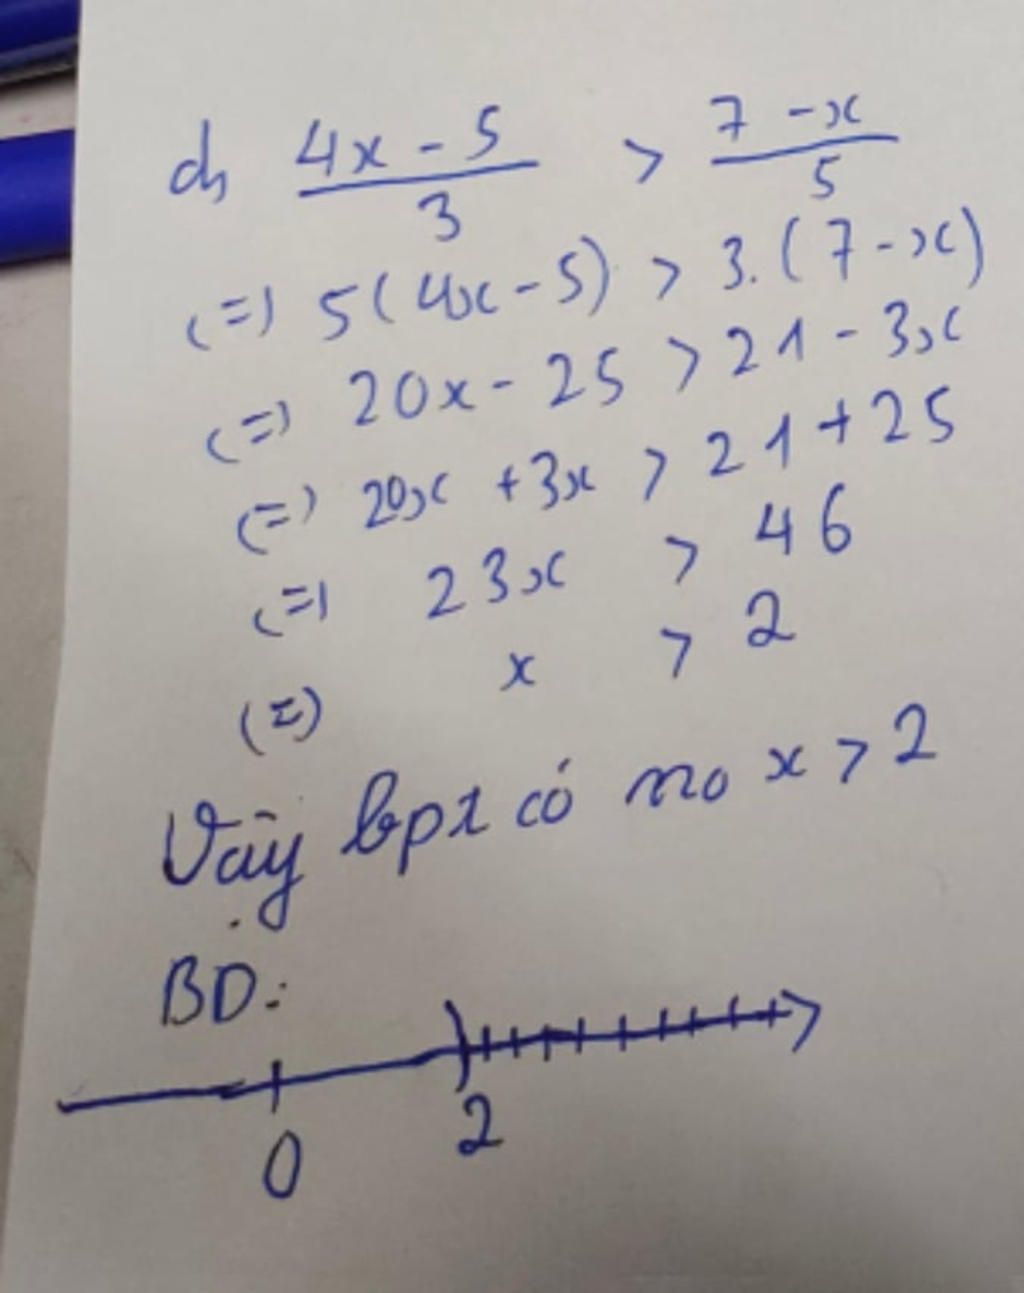 d, (4x - 5)/3 > (7 - x)/5
(=) 5(4x - 5) > 3.(7 - x)
(=) 20x - 25 > 21 - 3x
(=) 20x + 3x > 21 + 25
(=) 23x > 46
(=) x > 2
Vậy bpt có no x > 2
BD:
0 2